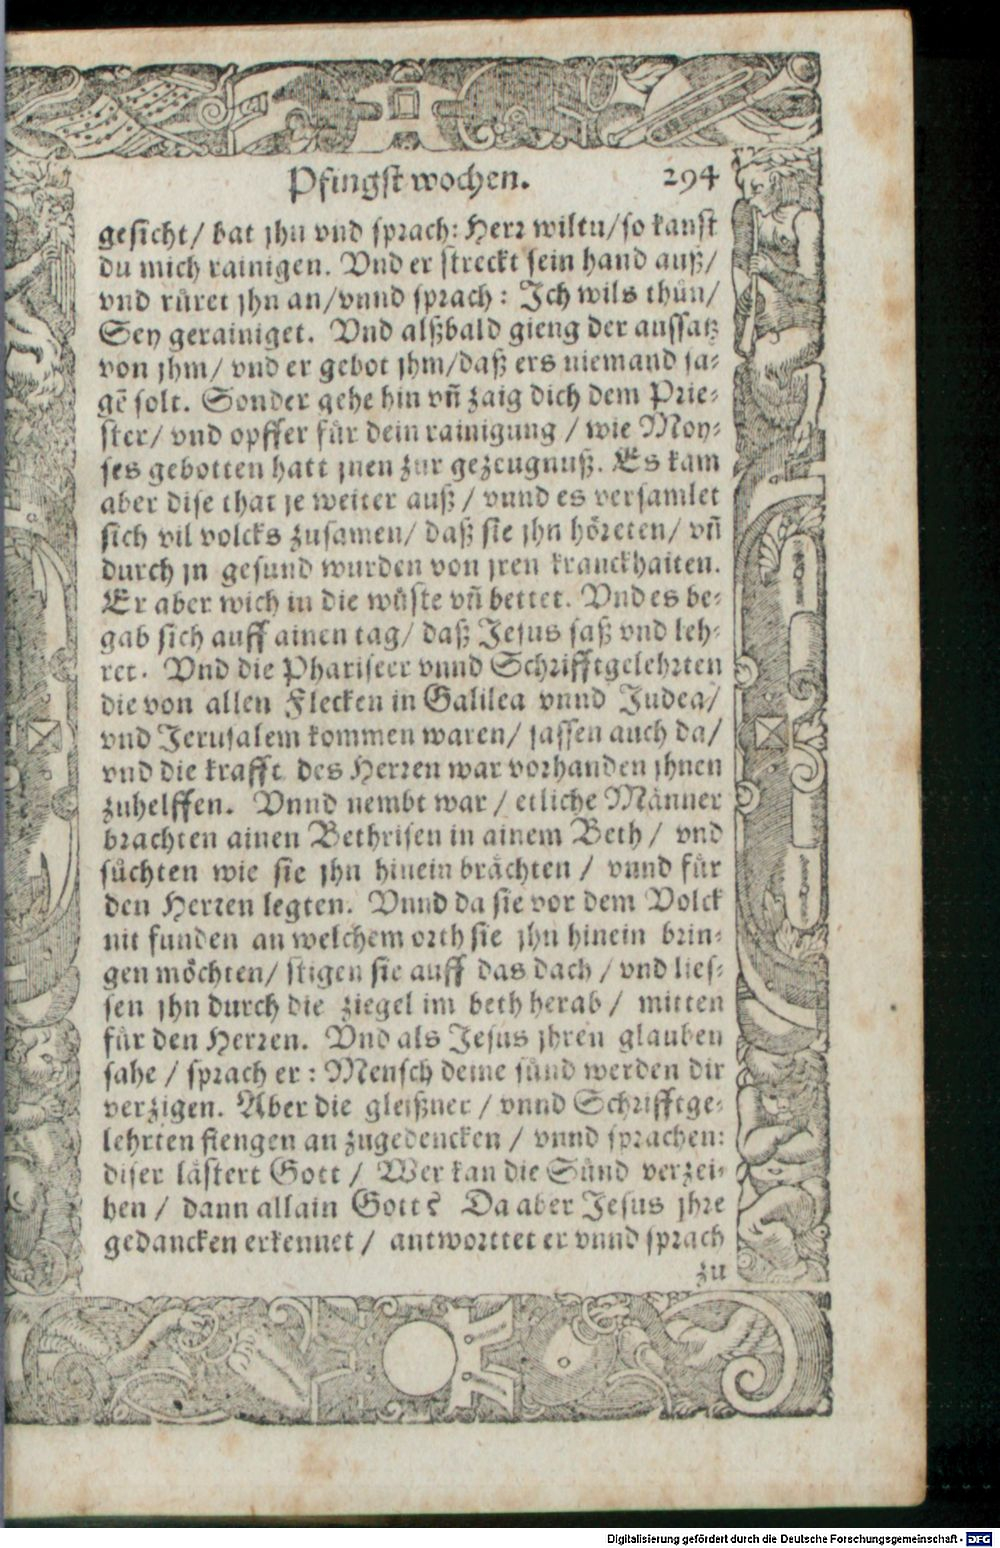 Pfingst wochen. 294
gesicht/ bat jhn vnd sprach: Herr wiltu/so kanst
du mich rainigen. Vnd er streckt sein hand auß/
vnd rüret jhn an/vnnd sprach: Ich wils thůn/
Sey gerainiget. Vnd alßbald gieng der aussatz
von jhm/ vnd er gebot jhm/daß ers niemand sa-
gē solt. Sonder gehe hin vñ zaig dich dem Prie-
ster/ vnd opffer für dein rainigung / wie Moy-
ses gebotten hatt jnen zur gezeugnuß. Es kam
aber dise that je weiter auß / vnnd es versamlet
sich vil volcks zusamen/ daß sie jhn höreten/ vñ
durch jn gesund wurden von jren kranckhaiten.
Er aber wich in die wüste vñ bettet. Vnd es be-
gab sich auff ainen tag/ daß Jesus saß vnd leh-
ret. Vnd die Phariseer vnnd Schrifftgelehrten
die von allen Flecken in Galilea vnnd Judea/
vnd Jerusalem kommen waren/ sassen auch da/
vnd die krafft des Herren war vorhanden jhnen
zuhelffen. Vnnd nembt war / etliche Männer
brachten ainen Bethrisen in ainem Beth / vnd
süchten wie sie jhn hinein brächten / vnnd für
den Herren legten. Vnnd da sie vor dem Volck
nit funden an welchem orth sie jhn hinein brin-
gen möchten/ stigen sie auff das dach / vnd lies-
sen jhn durch die ziegel im beth herab / mitten
für den Herren. Vnd als Jesus jhren glauben
sahe / sprach er : Mensch deine sünd werden dir
verzigen. Aber die gleißner / vnnd Schrifftge-
lehrten fiengen an zugedencken / vnnd sprachen:
diser lästert Gott / Wer kan die Sünd verzei-
hen / dann allain Gott? Da aber Jesus jhre
gedancken erkennet / antworttet er vnnd sprach
zu
Digitalisierung gefördert durch die Deutsche Forschungsgemeinschaft - DFG